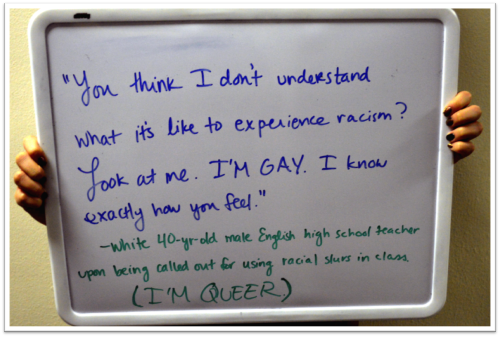 "You think I don't understand
what it's like to experience racism?
Look at me. I'M GAY. I know
exactly how you feel."
-White 40-yr-old male English high school teacher
upon being called out for using racial slurs in class.
(I'M QUEER)